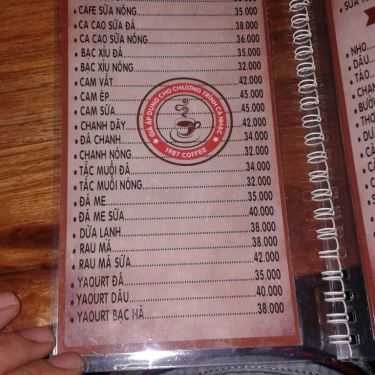 CAFE SỮA NÓNG 35.000
CA CAO SỮA ĐÁ 38.000
CA CAO SỮA NÓNG 36.000
BẠC XỈU ĐÁ 35.000
BẠC XỈU NÓNG 32.000
CAM VẮT 42.000
CAM ÉP 45.000
CAM SỮA 45.000
CHANH DÂY 42.000
ĐÁ CHANH 34.000
CHANH NÓNG 32.000
TẮC MUỐI ĐÁ 34.000
TẮC MUỐI NÓNG 32.000
ĐÁ ME 35.000
ĐÁ ME SỮA 40.000
DỪA LẠNH 38.000
RAU MÁ 38.000
RAU MÁ SỮA 42.000
YAOURT ĐÁ 35.000
YAOURT DÂU 40.000
YAOURT BẠC HÀ 38.000
GIÁ ÁP DỤNG CHO CHƯƠNG TRÌNH CA NHẠC
1987 COFFEE
NHO
DÂU
TÁO